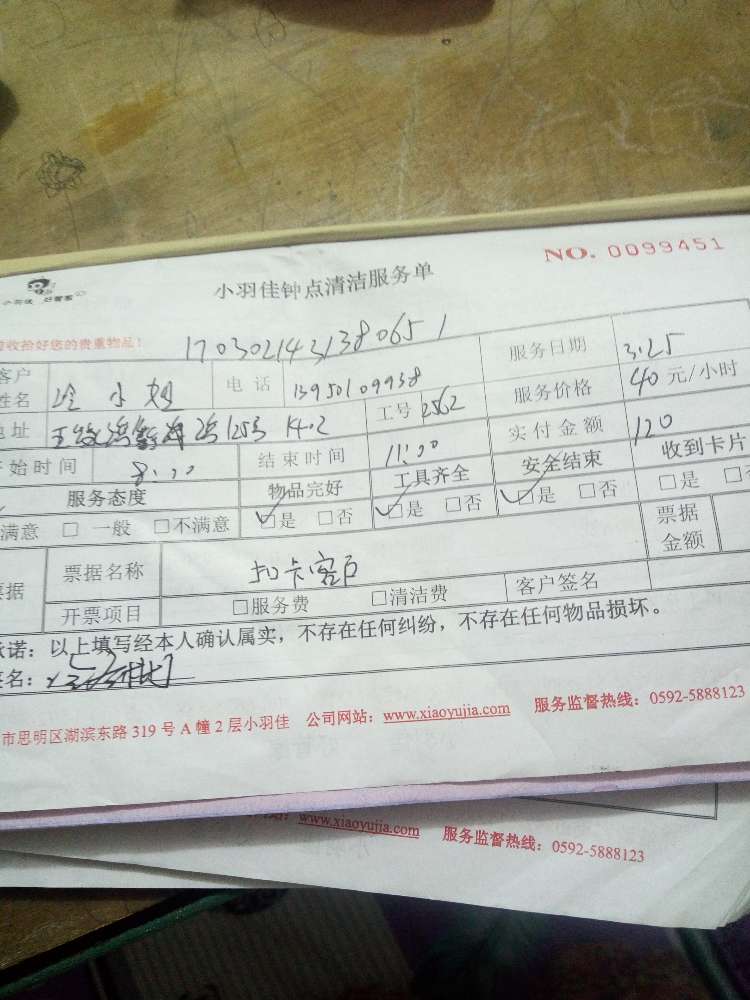 NO. 0099451
小羽佳 好管家
小羽佳钟点清洁服务单
收拾好您的贵重物品!
170302143138065 1
客户姓名 小姐 电话 13950109938 服务日期 3.25
地址 125号 1402 工号 2562 服务价格 40 元/小时
开始时间 8:00 结束时间 11:00 实付金额 120
服务态度 物品完好 工具齐全 安全结束 收到卡片
满意 □ 一般 □不满意 ☑是 □否 ☑是 □否 ☑是 □否 □是 □否
票据 票据名称 扣卡客户 票据金额
开票项目 □服务费 □清洁费 客户签名
承诺：以上填写经本人确认属实，不存在任何纠纷，不存在任何物品损坏。
签名：
市思明区湖滨东路 319 号 A 幢 2 层小羽佳 公司网站：www.xiaoyujia.com 服务监督热线：0592-5888123
www.xiaoyujia.com 服务监督热线：0592-5888123